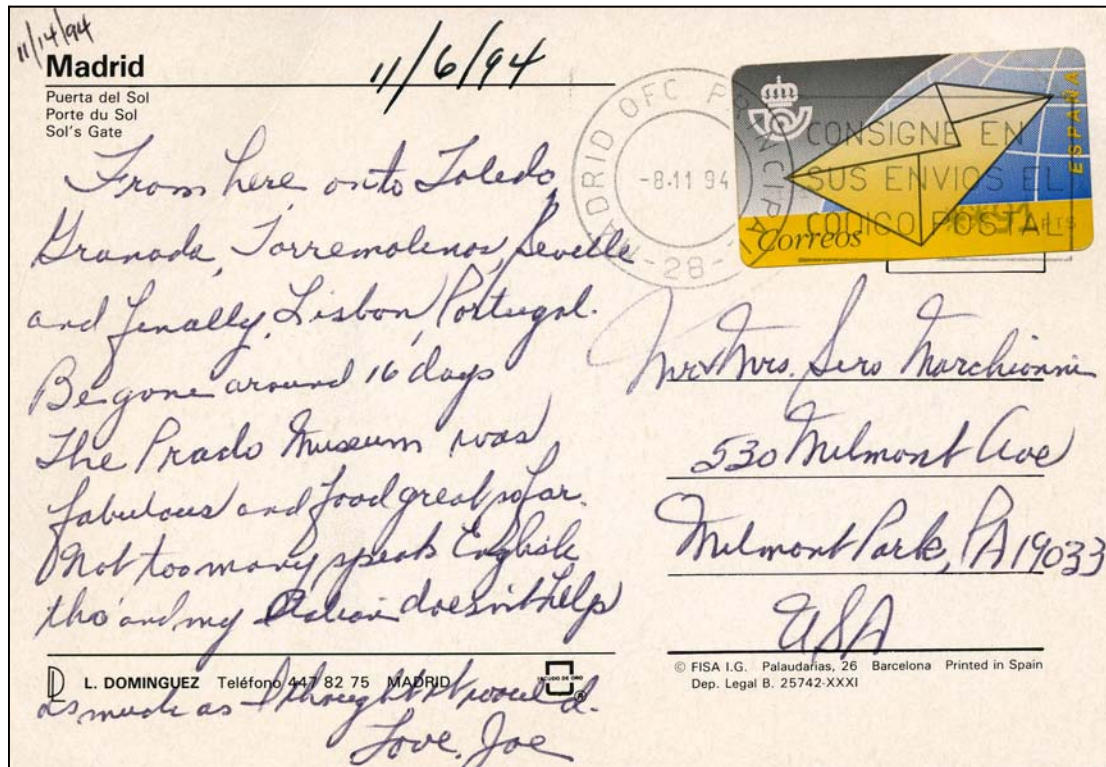 11/14/94
Madrid
11/6/94
Puerta del Sol
Porte du Sol
Sol's Gate
From here onto Toledo,
Granada, Torremolinos, Seville
and finally, Lisbon, Portugal.
Be gone around 16 days
The Prado Museum was
fabulous and food great so far.
Not too many speak English
tho' and my Italian doesn't help
as much as I thought it would.
Love, Joe
L. DOMINGUEZ Teléfono 447 82 75 MADRID
ESCUDO DE ORO
MADRID OFC PRINCIPAL
-8.11 94
-28-
CONSIGNE EN
SUS ENVIOS EL
CODIGO POSTAL
Correos
ESPAÑA
PTS
Mr & Mrs. Sero Marchionni
530 Milmont Ave
Milmont Park, PA 19033
USA
© FISA I.G. Palaudarias, 26 Barcelona Printed in Spain
Dep. Legal B. 25742-XXXI